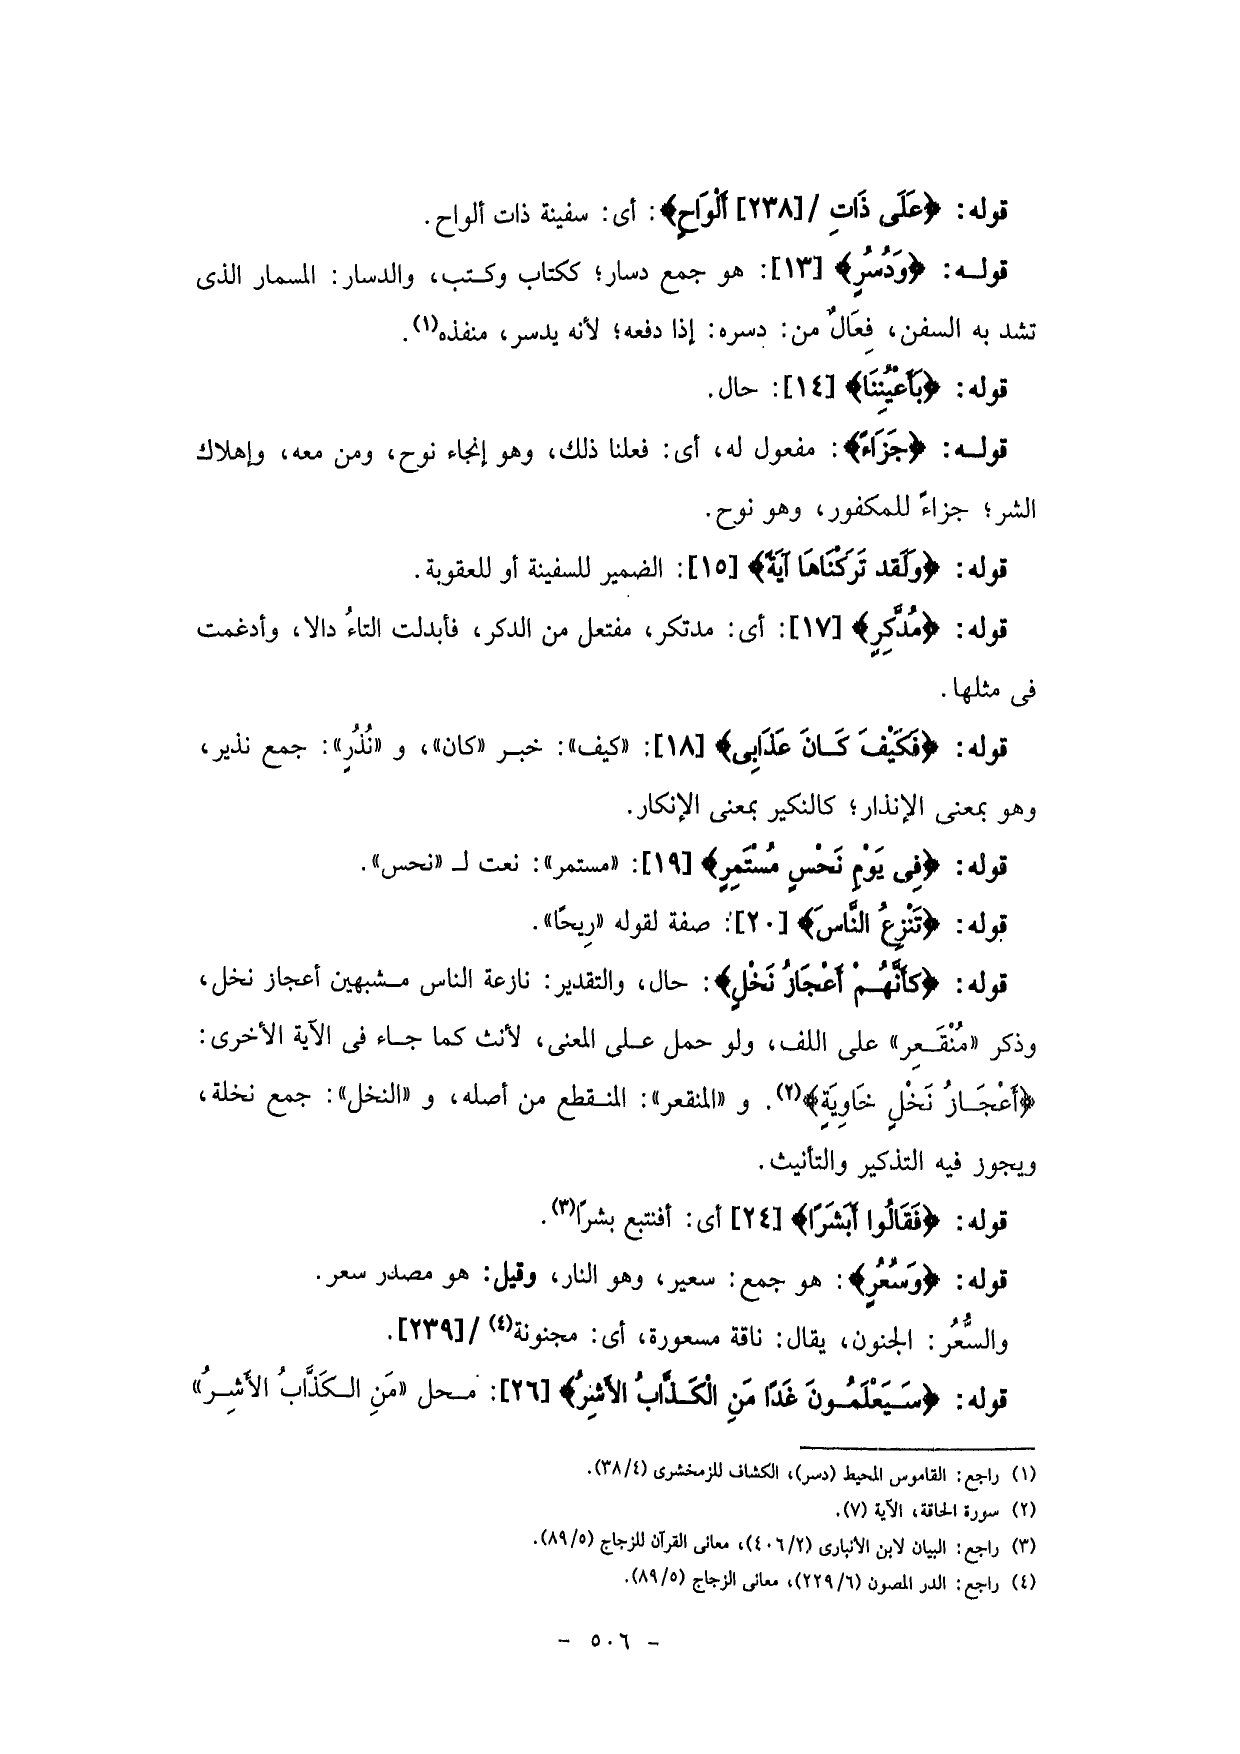 قوله: ﴿عَلَى ذَاتِ /[٢٣٨] أَلْوَاحٍ﴾: أى: سفينة ذات ألواح.
قولـه: ﴿وَدُسُرٍ﴾ [١٣]: هو جمع دسار؛ ككتاب وكتب، والدسار: المسمار الذى
تشد به السفن، فِعَالٌ من: دسره: إذا دفعه؛ لأنه يدسر، منفذه(١).
قوله: ﴿بَأَعْيُنِنَا﴾ [١٤]: حال.
قولـه: ﴿جَزَاءً﴾: مفعول له، أى: فعلنا ذلك، وهو إنجاء نوح، ومن معه، وإهلاك
الشر؛ جزاءً للمكفور، وهو نوح.
قوله: ﴿وَلَقَد تَرَكْنَاهَا آيَةً﴾ [١٥]: الضمير للسفينة أو للعقوبة.
قوله: ﴿مُدَّكِرٍ﴾ [١٧]: أى: مدتكر، مفتعل من الدكر، فأبدلت التاءُ دالا، وأدغمت
فى مثلها.
قوله: ﴿فَكَيْفَ كَـانَ عَذَابِى﴾ [١٨]: «كيف»: خبـر «كان»، و «نُذُرِ»: جمع نذير،
وهو بمعنى الإنذار؛ كالنكير بمعنى الإنكار.
قوله: ﴿فِى يَوْمِ نَحْسٍ مُسْتَمِرٍ﴾ [١٩]: «مستمر»: نعت لـ «نحس».
قوله: ﴿تَنْزِعُ النَّاسَ﴾ [٢٠]: صفة لقوله «رِيحًا».
قوله: ﴿كَأَنَّهُـمْ أَعْجَازُ نَخْلٍ﴾: حال، والتقدير: نازعة الناس مـشبهين أعجاز نخل،
وذكر «مُنْقَـعِر» على اللف، ولو حمل عـلى المعنى، لأنث كما جـاء فى الآية الأخرى:
﴿أَعْجَـازُ نَخْلٍ خَاوِيَةٍ﴾(٢). و «المنقعر»: المنـقطع من أصله، و «النخل»: جمع نخلة،
ويجوز فيه التذكير والتأنيث.
قوله: ﴿فَقَالُوا أَبَشَرًا﴾ [٢٤] أى: أفنتبع بشرًا(٣).
قوله: ﴿وَسُعُرٍ﴾: هو جمع: سعير، وهو النار، وقيل: هو مصدر سعر.
والسُّعُر: الجنون، يقال: ناقة مسعورة، أى: مجنونة(٤) /[٢٣٩].
قوله: ﴿سَـيَعْلَمُـونَ غَدًا مَنِ الْكَـذَّابُ الأَشِرُ﴾ [٢٦]: مـحل «مَنِ الـكَذَّابُ الأَشِـرُ»
(١) راجع: القاموس المحيط (دسر)، الكشاف للزمخشرى (٣٨/٤).
(٢) سورة الحاقة، الآية (٧).
(٣) راجع: البيان لابن الأنبارى (٤٠٦/٢)، معانى القرآن للزجاج (٨٩/٥).
(٤) راجع: الدر المصون (٢٢٩/٦)، معانى الزجاج (٨٩/٥).
- ٥٠٦ -